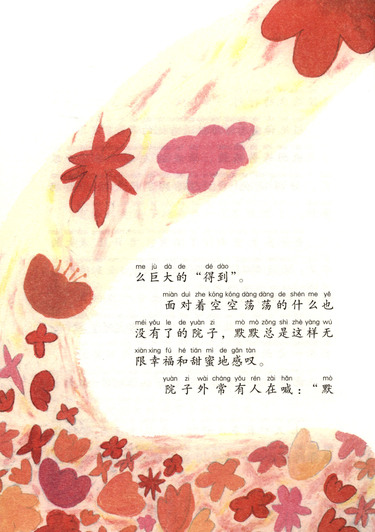 me jù dà de dé dào
么巨大的“得到”。
miàn duì zhe kōng kōng dàng dàng de shén me yě
面对着空空荡荡的什么也
méi yǒu le de yuàn zi mò mò zǒng shì zhè yàng wú
没有了的院子，默默总是这样无
xiàn xìng fú hé tián mì de gǎn tàn
限幸福和甜蜜地感叹。
yuàn zi wài cháng yǒu rén zài hǎn mò
院子外常有人在喊：“默